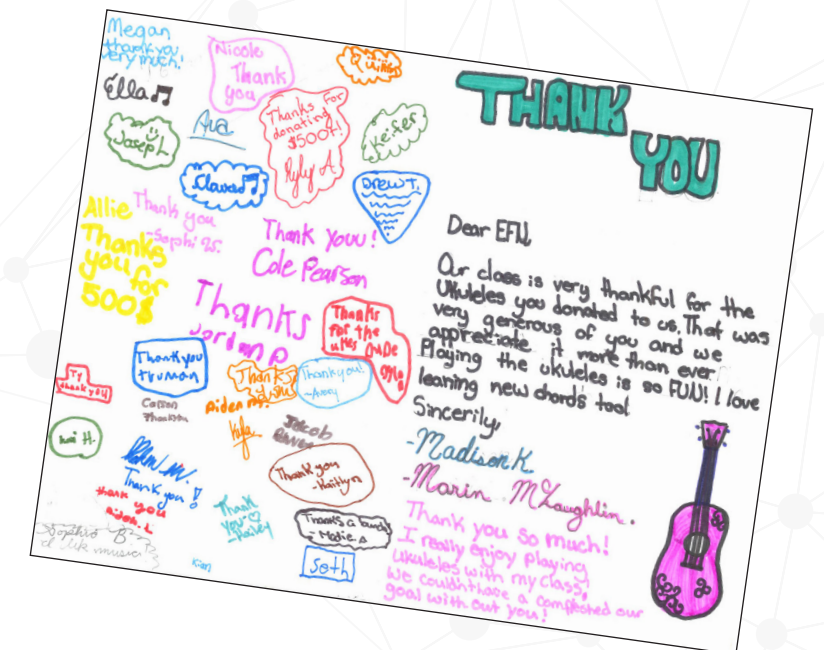 Megan
thank you
very much!
Nicole
Thank
you
Quinn
Ella
Joseph
Ava
Thanks for
donating
$500+!
Ryly A.
Keifer
Drew T.
Allie
Thanks
you for
500$
Thank you
-Sophi W.
Thank Youu!
Cole Pearson
Thanks
Thanks
for the
ukes
Thank you
truman
Thanks
Thank you!
-Avery
TJ
thank you
Carson
Thank you
Aiden
Kyla
Jacob
H.
Thank you
-Kaitlyn
Thank you!
thank you
Aiden. L
Thank
You
-Hailey
Thanks a bunch
- Madie
Sophie B
I like music
Kian
Seth
THANK
YOU
Dear EFN,
Our class is very thankful for the
Ukuleles you donated to us. That was
very generous of you and we
appreciate it more than ever
Playing the ukuleles is so FUN! I love
leaning new chords too!
Sincerily,
-Madison K
-Marin McLaughlin.
Thank you so much!
I really enjoy playing
ukuleles with my class,
we couldnt have a compleated our
goal with out you!